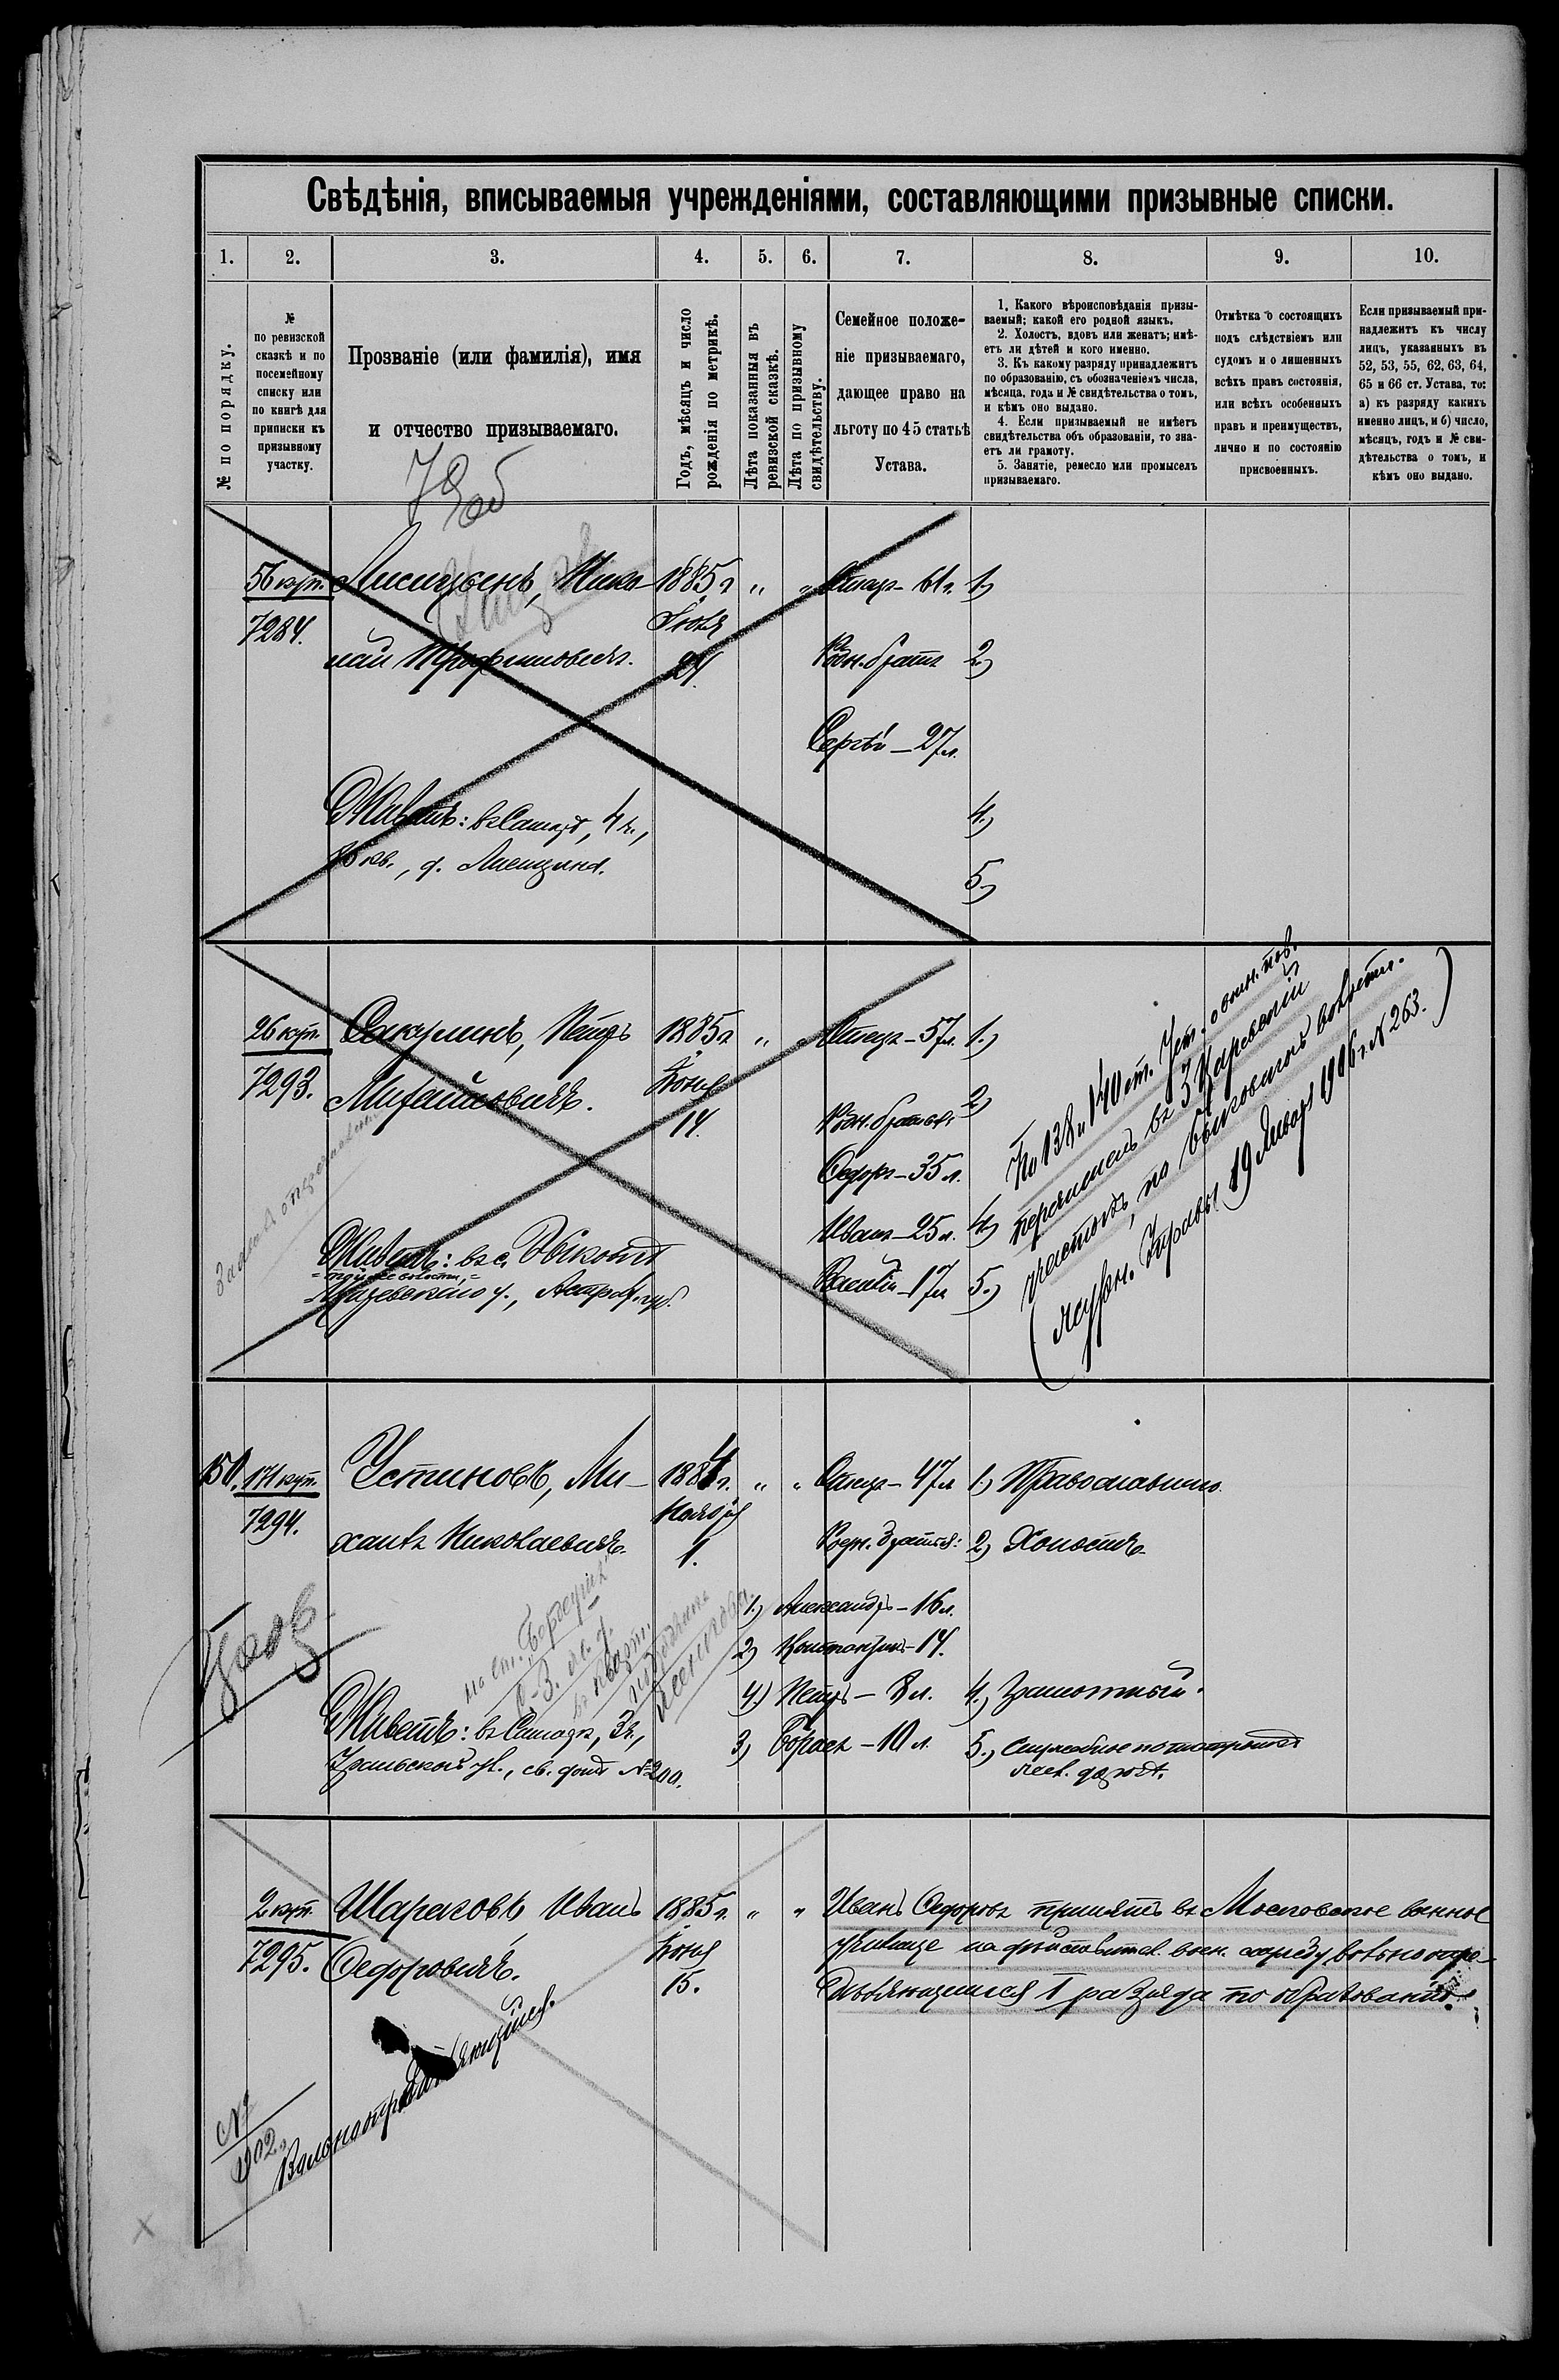 Свѣдѣнія, вписываемыя учрежденіями, составляющими призывные списки.
1.
2.
3.
4.
5.
6.
7.
8.
9.
10.
№ по порядку.
№
по ревизской
сказкѣ и по
посемейному
списку или
по книгѣ для
приписки къ
призывному
участку.
Прозваніе (или фамилія), имя
и отчество призываемаго.
Годъ, мѣсяцъ и число
рожденія по метрикѣ.
Лѣта показанныя въ
ревизской сказкѣ.
Лѣта по призывному
свидѣтельству.
Семейное положе-
ніе призываемаго,
дающее право на
льготу по 45 статьѣ
Устава.
1. Какого вѣроисповѣданія призы-
ваемый; какой его родной языкъ.
2. Холостъ, вдовъ или женатъ; имѣ-
етъ ли дѣтей и кого именно.
3. Къ какому разряду принадлежитъ
по образованію, съ обозначеніемъ числа,
мѣсяца, года и № свидѣтельства о томъ,
и кѣмъ оно выдано.
4. Если призываемый не имѣетъ
свидѣтельства объ образованіи, то зна-
етъ ли грамоту.
5. Занятіе, ремесло или промыселъ
призываемаго.
Отмѣтка о состоящихъ
подъ слѣдствіемъ или
судомъ и о лишенныхъ
всѣхъ правъ состоянія,
или всѣхъ особенныхъ
правъ и преимуществъ,
лично и по состоянію
присвоенныхъ.
Если призываемый при-
надлежитъ къ числу
лицъ, указанныхъ въ
52, 53, 55, 62, 63, 64,
65 и 66 ст. Устава, то:
а) къ разряду какихъ
именно лицъ, и б) число,
мѣсяцъ, годъ и № сви-
дѣтельства о томъ, и
кѣмъ оно выдано.
56 куп.
7284.
Лисицынъ, Нико-
лай Трофимовичъ.
1885 г.
Іюля
21.
„ „
Отецъ - 61 г.
Родн. братъ
Сергѣй - 27 л.
1)
2)
4)
5)
Живетъ: въ Самарѣ, 4 ч.,
86 кв., д. Лисицына.
26 куп.
7293.
Сакулинъ, Петръ
Михайловичъ.
1885 г.
Іюня
14.
Отецъ - 57 л.
Родн. братья:
Федоръ - 35 л.
Иванъ - 25 л.
Василій - 17 л.
1)
2)
4)
5)
Живетъ: въ с. Быковѣ
той же волости,
Царевскаго у., Астрах. губ.
По 138 и 140 ст. Уст. о воин. пов.
перечисленъ въ 3 Царевскій
участокъ, по Быковской волости.
(журн. Управы 19 Января 1906 г. № 263.)
150.
171 куп.
7294.
Устиновъ, Ми-
хаилъ Николаевичъ.
1884 г.
Ноября
1.
„ „
Отецъ - 47 л.
Родн. братья:
1) Александръ - 16 л.
2) Константинъ - 14.
4) Петръ - 8 л.
3) Борисъ - 10 л.
1) Православный.
2) Холостъ.
4) Грамотный.
5) Служебное по контролю
жел. дорог.
Живетъ: въ Самарѣ, 3 ч.,
Уральской ул., св. домъ № 200.
2 куп.
7295.
Шараговъ Иванъ
Федоровичъ.
1885 г.
Іюня
15.
„ „
Иванъ Федоровъ принятъ въ Московское военное
училище на дѣйствител. воен. службу вольноопре-
дѣляющимся I разряда по образованію.
Вольноопредѣляющійся.
№
902.